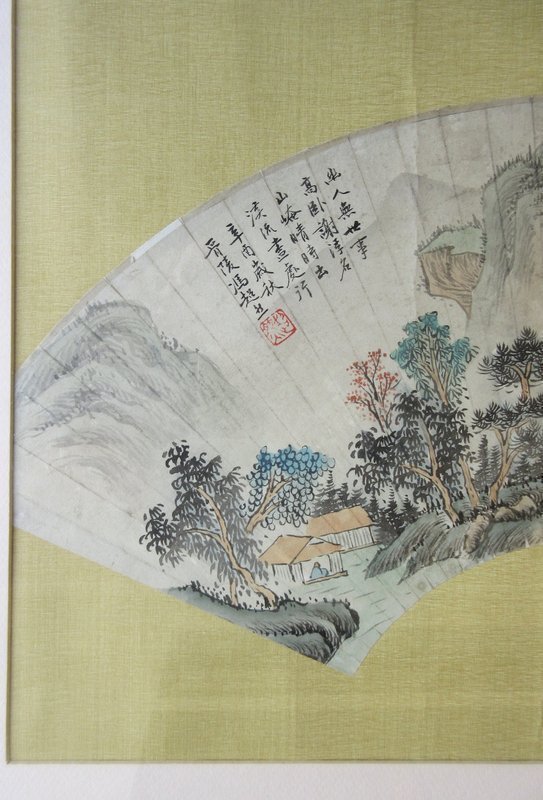 幽人無世事
高卧謝浮名
山晴時出
溪流盡處行
辛酉歲秋
晉陵馮超然